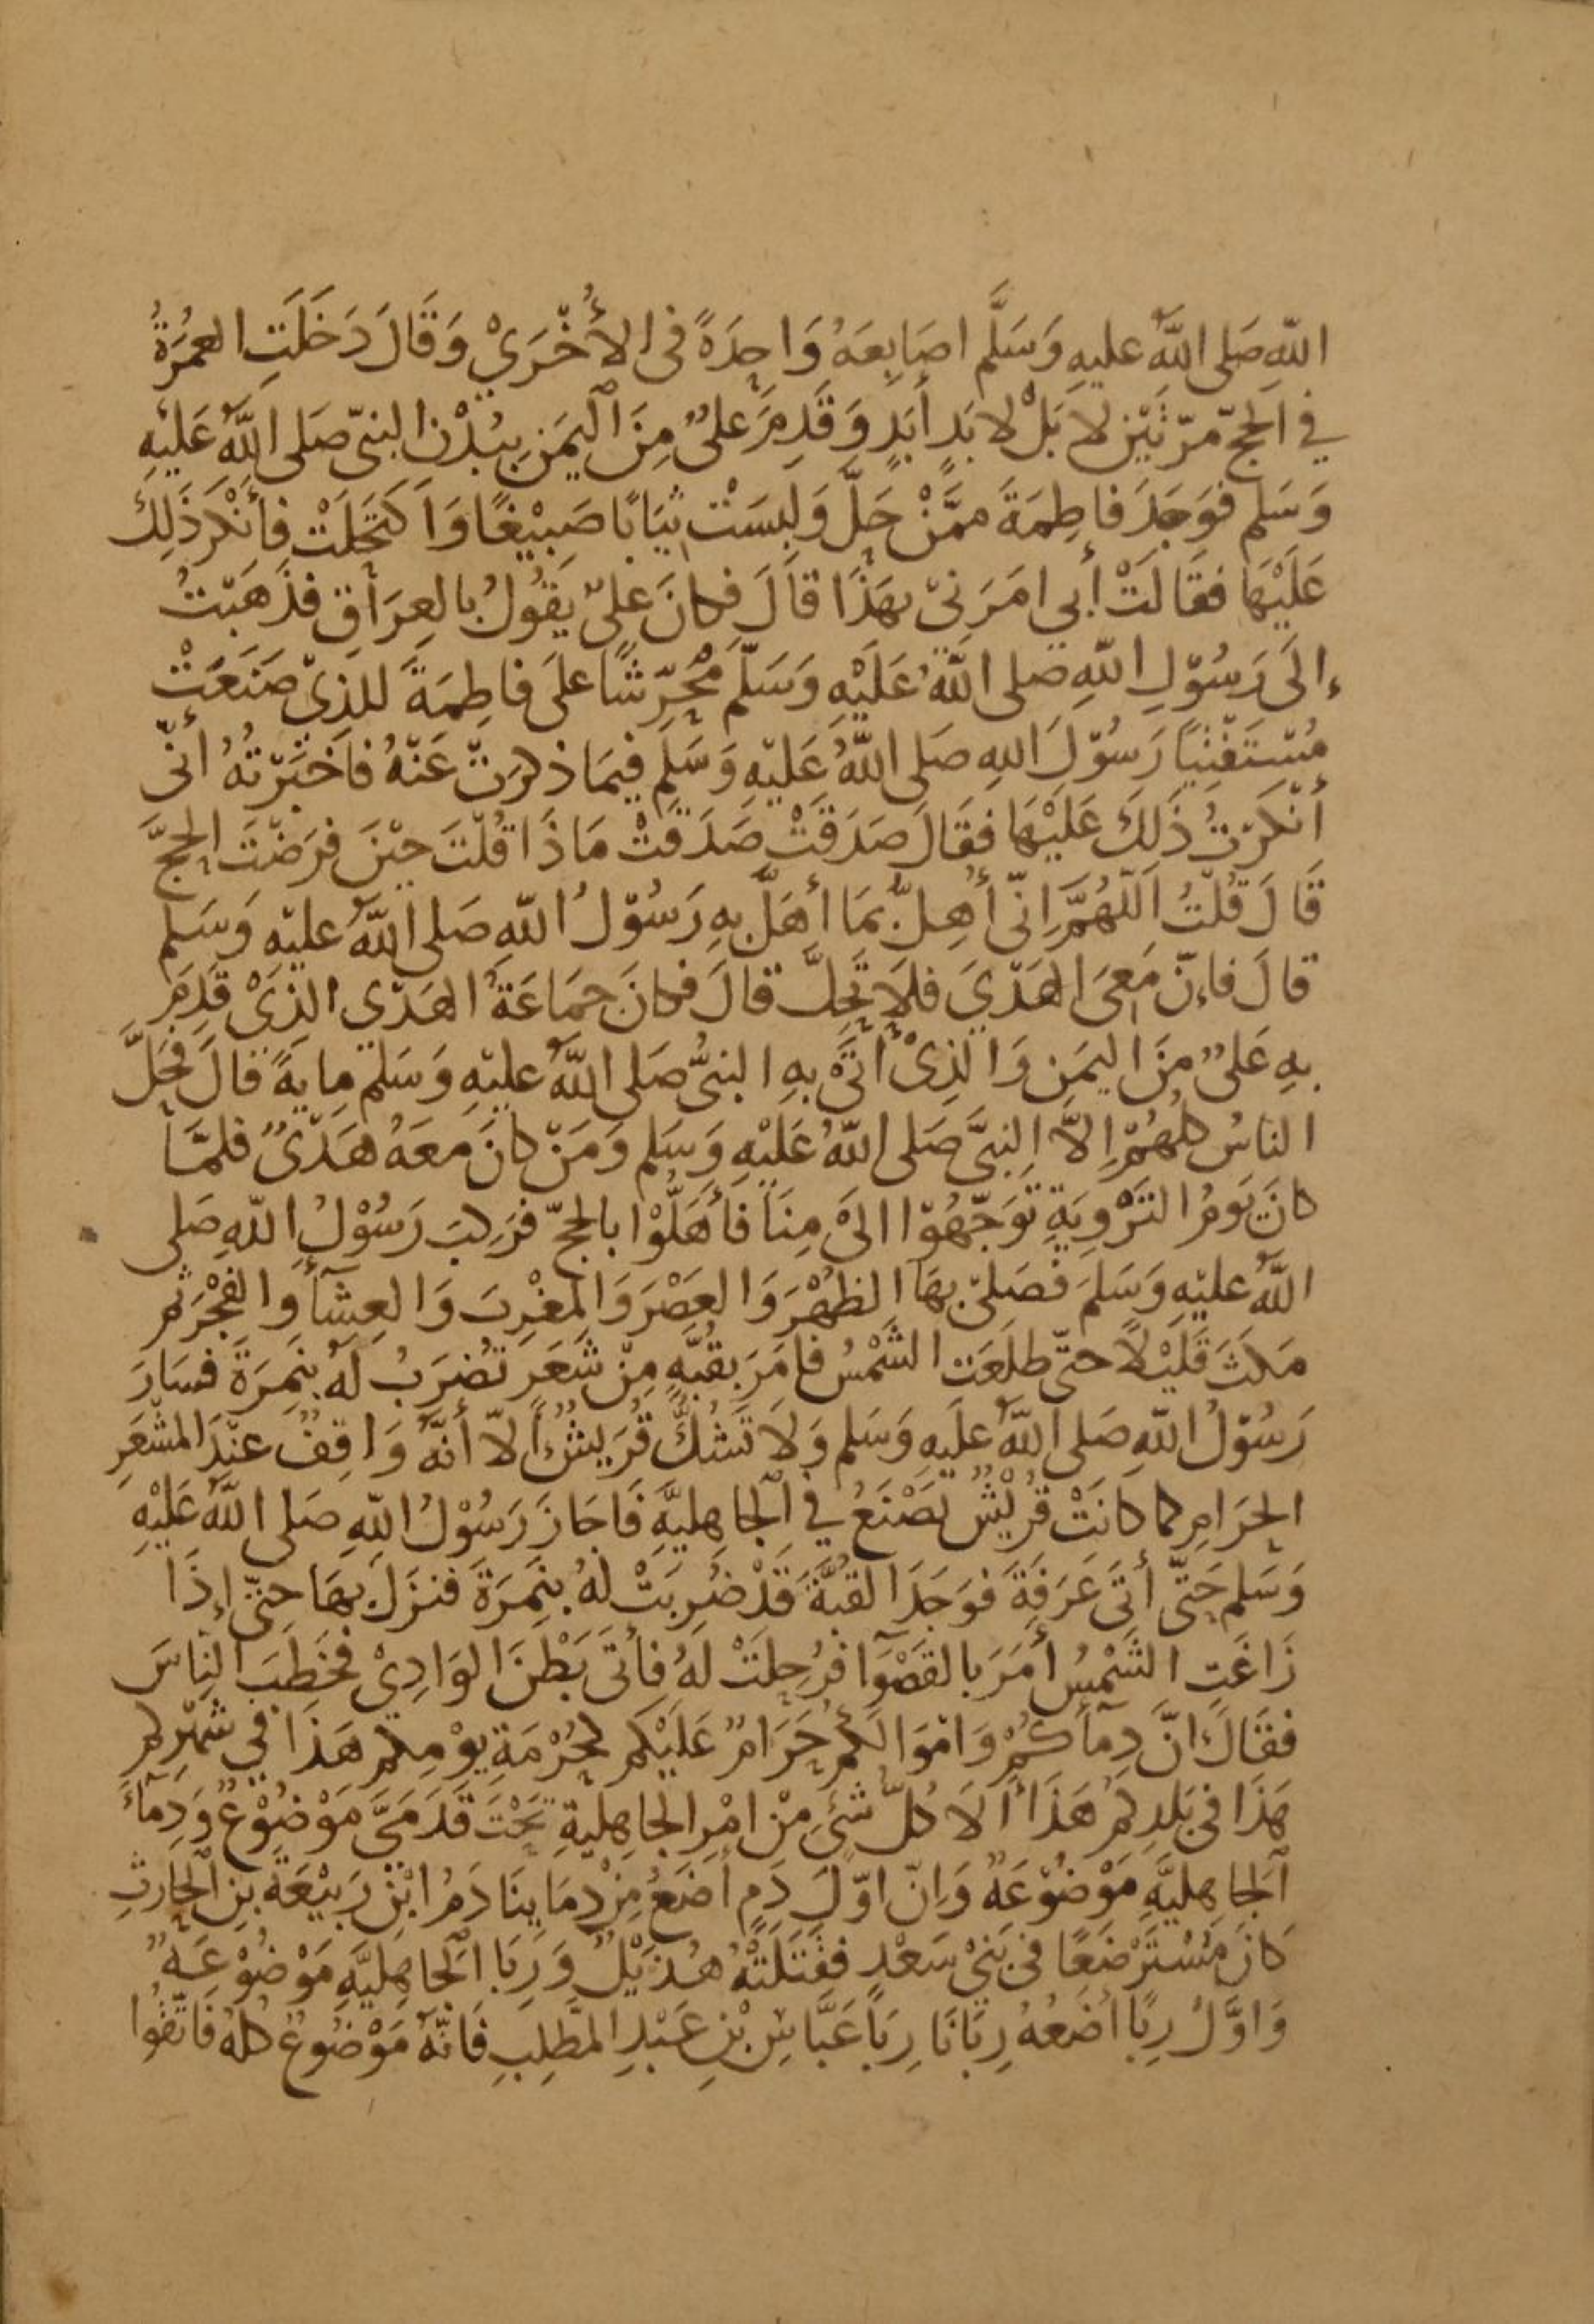 اللّهِ صَلى اللَّهُ عليهِ وَسَلَّم اصَابِعَهُ وَاحِدَةً فى الأُخْرَيْ وَقَالَ دَخَلَتِ العُمْرَةُ
في الحَجّ مرّتَيْنِ لا بَلْ لا بَدِ أَبَدٍ وَقَدِمَ عَلىٌّ مِنَ اليَمَنِ بِبُدْنِ النبىّ صَلى اللَّهُ عَلَيْهِ
وَسَلم فوَجَدَ فاطِمَةَ ممَّنْ حَلَّ وَلَبِسَتْ ثيَابًا صَبِيْغًا وَاكتَحَلَتْ فأنْكَرَ ذَلِكَ
عَلَيْهَا فقَالَتْ أبي امَرَنىْ بهَذَا قالَ فكانَ علىّ يَقُولُ بالعِرَاقِ فذَهَبْتُ
إلَى رَسُوْلِ اللّهِ صلى اللَّهُ عَلَيْهِ وَسَلّمَ مُحَرِّشًا علَى فاطِمَةَ للذِىْ صَنَعَتْ
مُسْتَفْتِيًا رَسُوْلَ اللهِ صَلى اللَّهُ عَلَيْهِ وَسَلم فيمَا ذكرَتْ عَنْهُ فاخبَرْتُهُ انّى
أنْكَرْتُ ذَلِكَ عَلَيْهَا فقَالَ صَدَقَتْ صَدَقَتْ مَاذَا قُلْتَ حِيْنَ فرَضْتَ الحَجَّ
قَالَ قُلْتُ اَللّهُمَّ اِنّى أُهِلُّ بمَا أهَلَّ بهِ رَسُوْلُ اللّهِ صَلى اللَّهُ عليْهِ وَسَلم
قالَ فاِنّ مَعِىَ الهَدْيَ فلَا تَحِلَّ قالَ فكانَ جمَاعَةُ الهَدْي الذِىْ قَدِمَ
بهِ عَلىٌّ مِنَ اليَمَنِ وَالذِىْ أتَى بهِ النبىُّ صَلى اللَّهُ عليْهِ وَسَلم مِايَةً قالَ فحَلَّ
الناسُ كلُّهُمْ اِلاَّ النبىَّ صَلى اللَّهُ عَلَيْهِ وَسَلم وَمَنْ كانَ معَهُ هَدْىٌ فلمَّا
كانَ يَومُ التَرْوِيَةِ تَوَجّهُوْا الىَ مِنَا فأهَلُّوْا بالحَجّ فرَكِبَ رَسُوْلُ اللّهِ صَلى
اللَّهُ عليْهِ وَسَلمَ فصَلىّ بهَا الظهْرَ وَالعَصْرَ وَالمغْرِبَ وَالعِشَآءَ وَالفَجْرَ ثم
مَكثَ قَلِيْلًا حتّى طلَعَت الشَّمْسُ فامَرَ بقُبَّةٍ مِنْ شَعَرٍ تُضرَبُ لَهُ بنَمِرَةَ فسَارَ
رَسُوْلُ اللّهِ صَلى اللَّهُ علَيهِ وَسَلم وَلَا تَشُكُّ قُرَيْشٌ اِلاّ أنّهُ وَاقِفٌ عنْدَ المشْعَرِ
الحَرَامِ كما كانَتْ قُرَيْشٌ تَصْنَعُ في الجَاهِليَّةِ فَاجَازَ رَسُوْلُ اللّهِ صَلى اللَّهُ عَلَيْهِ
وَسَلم حَتّى أتَى عَرَفَةَ فوَجَدَ القبَّةَ قَدْ ضُرِبَتْ لهُ بنَمِرَةَ فنزَلَ بهَا حتّى إذَا
زَاغَتِ الشَّمْسُ أمَرَ بالقَصْوَآ فرُحِلَتْ لَهُ فأتَى بَطْنَ الوَادِيْ فخَطَبَ النَاسَ
فقَالَ انّ دِمَآكُمْ وَامْوَالكُمْ حَرَامٌ عَلَيْكم كحُرْمَةِ يوْمِكم هَذَا في شَهْرِكم
هَذَا فى بَلدِكمْ هَذَا أَلَا كلُّ شَئٍ مِنْ امْرِ الجاهِليةِ تَحْتَ قَدَمَىَّ مَوْضُوْعٌ وَدِمَآءُ
اَلجاهِليَّةِ مَوْضُوْعَةٌ وَاِنّ اوّلَ دَمٍ أضَعُ مِنْ دِمَاينَا دَمُ ابْنِ رَبيْعَةَ بْنِ الحَارِثِ
كانَ مُسْتَرْضَعًا فى بَنىْ سَعْدٍ فقَتَلَتْهُ هُذَيْلٌ وَرِبَا الجَاهِليَّةِ مَوْضُوْعَةٌ
وَاوَّلُ رِبًا اضَعُهُ رِبَانَا رِبَا عَبَّاسِ بْنِ عَبْدِ المطلِبِ فَانّهُ مَوْضُوعٌ كلهُ فاتّقُوا